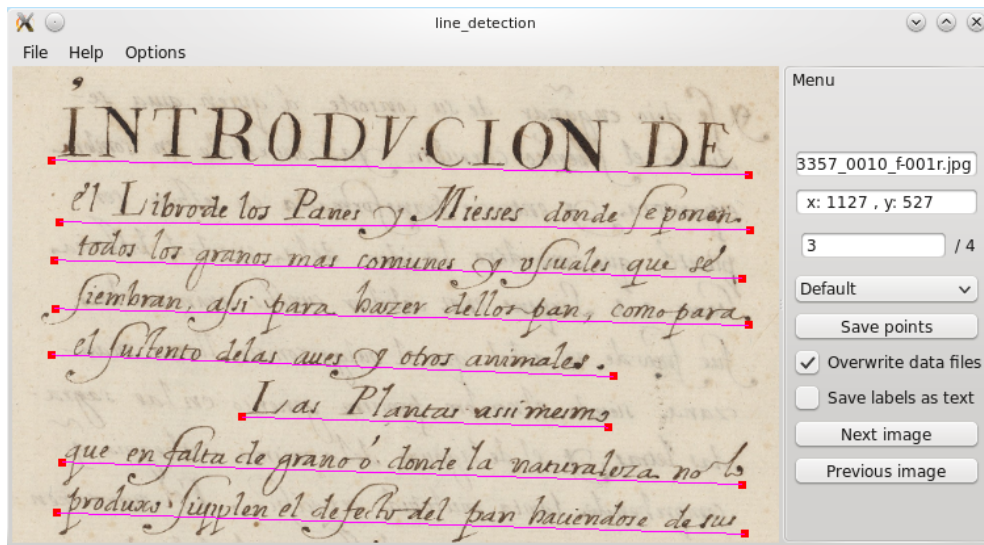 line_detection
File Help Options
Menu
INTRODVCION DE
el Libro de los Panes y Miesses donde se ponen.
todos los granos mas comunes y vssuales que se
siembran, assi para hazer dellos pan, como para
el sustento delas aues y otros animales.
Las Plantas assimesmo
que en falta de grano ó donde la naturaleza no lo
produxo supplen el defecto del pan haciendose de sus
3357_0010_f-001r.jpg
x: 1127 , y: 527
3 / 4
Default
Save points
Overwrite data files
Save labels as text
Next image
Previous image